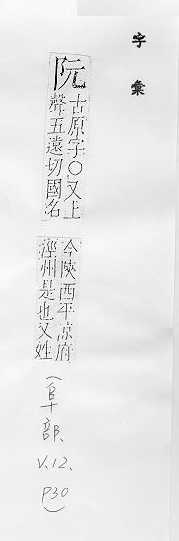 字彙
阮
古原字○又上
聲五遠切國名
今陝西平京府
涇州是也又姓
(阜部、
V.12、
P30)